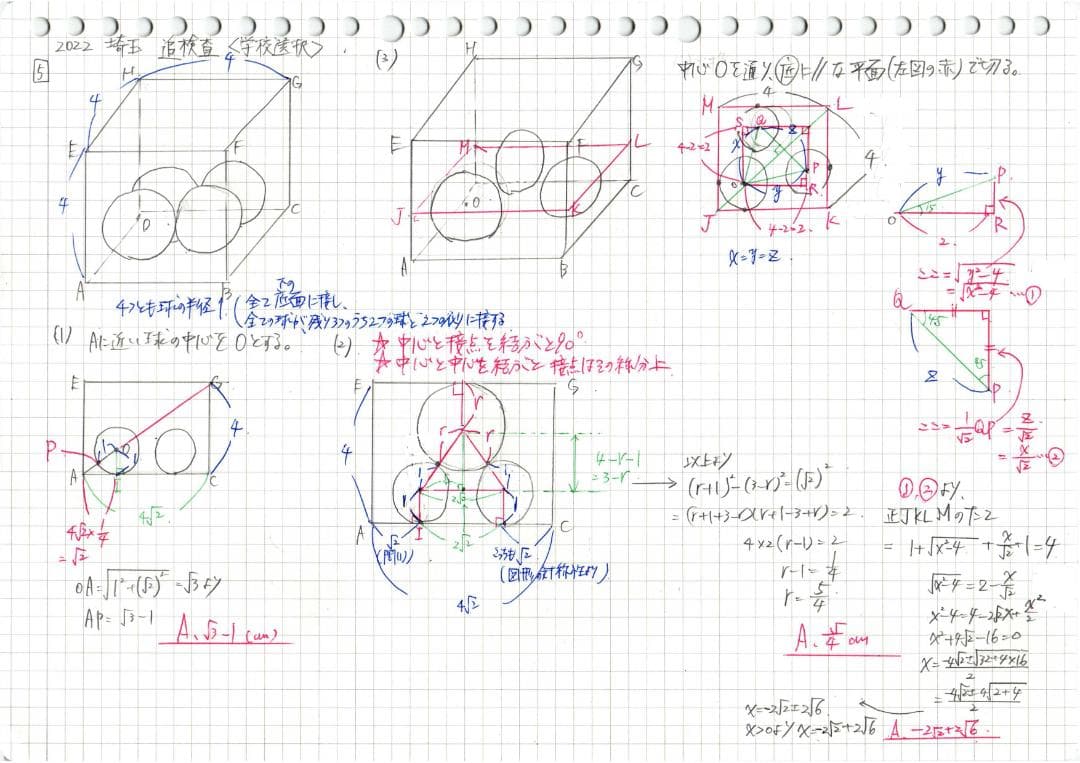 2022 埼玉 追検査 〈学校選択〉
5
H
4
G
4
E
F
4
O
C
A
B
4つとも球の半径1 (全て下の底面に接し、
全ての球が、残り3つのうち2つの球と2つの側に接する
(1) Aに近い球の中心をOとする。
E
G
P
O
1
1
4
A
I
C
4√2
4√2×1/4
=√2
OA=√1²+(√2)² =√3より
AP=√3-1
A、√3-1 (cm)
(2) ☆ 中心と接点を結ぶと90°
☆ 中心と中心を結ぶと接点はその線分上
E
L
G
r
r
r
4
4-r-1
=3-r
1
1
2√2
A
I
C
√2
(問(1))
2√2
ここも√2
(図形の対称性より)
4√2
以上より
(r+1)²-(3-r)²=(√2)²
=(r+1+3-r)(r+1-3+r)=2
4×2(r-1)=2
r-1=1/4
r=5/4
A、5/4 cm
(3)
H
G
E
M
F
L
J
O
K
C
A
B
中心Oを通り、底に//な平面(左図の赤)で切る。
4
M
L
S
Q
z
4-2=2
x
4
P
O
y
R
J
K
4-2=2
x=y=z
y
P
O
15
2
R
ここ=√y²-4
=√x²-4 …①
Q
45
45
z
P
ここ=1/√2 QP=z/√2
=x/√2 …②
①,②より、
正JKLMのたて
=1+√x²-4 + x/√2+1=4
√x²-4=2-x/√2
x²-4=4-2√2x+x²/2
x²+4√2-16=0
x=-4√2±√32+4×16/2
=-4√2±4√2+4/2
x=-2√2±2√6
x>0よりx=-2√2+2√6
A -2√2+2√6.